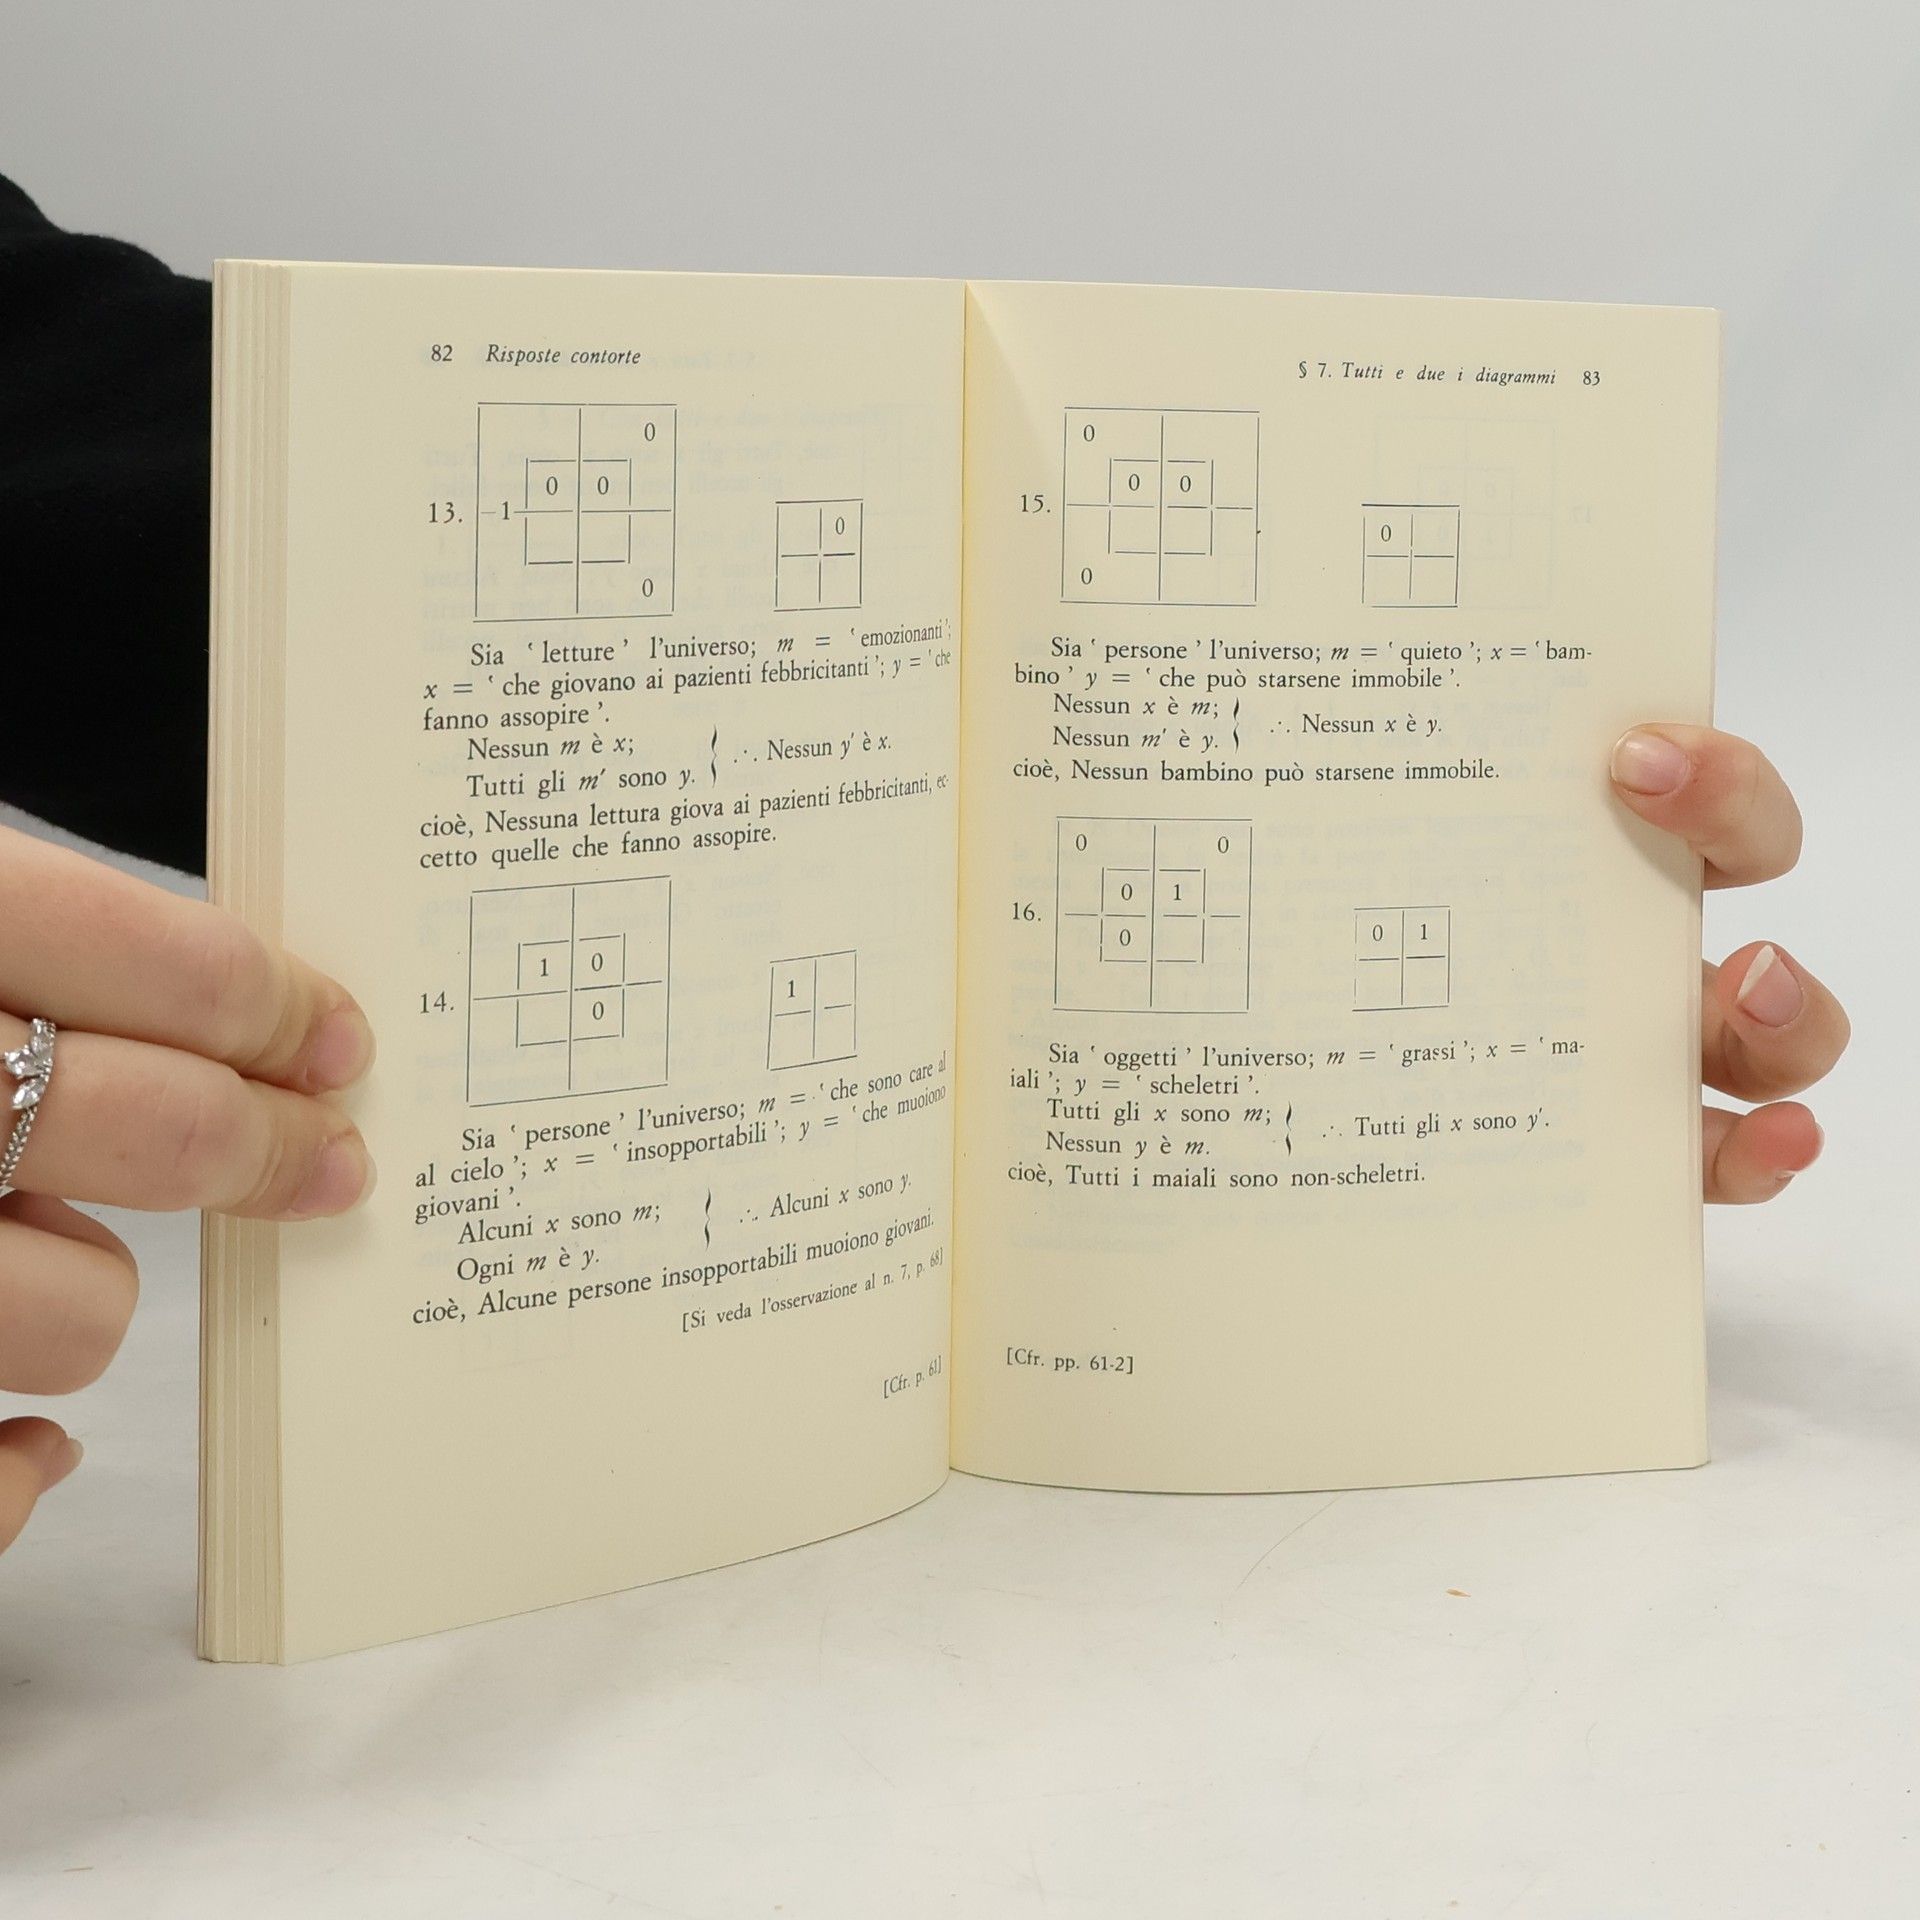 82 Risposte contorte
0
0 0
13. 1 0
0
Sia ‘ letture ’ l’universo; m = ‘ emozionanti ’;
x = ‘ che giovano ai pazienti febbricitanti ’; y = ‘ che
fanno assopire ’.
Nessun m è x;
∴ Nessun y′ è x.
Tutti gli m′ sono y.
cioè, Nessuna lettura giova ai pazienti febbricitanti, ec-
cetto quelle che fanno assopire.
1 0
14. 0 1
Sia ‘ persone ’ l’universo; m = ‘ che sono care al
al cielo ’; x = ‘ insopportabili ’; y = ‘ che muoiono
giovani ’.
Alcuni x sono m;
∴ Alcuni x sono y.
Ogni m è y.
cioè, Alcune persone insopportabili muoiono giovani.
[Si veda l’osservazione al n. 7, p. 68]
[Cfr. p. 61]
§ 7. Tutti e due i diagrammi 83
0
0 0
15. 0
0
Sia ‘ persone ’ l’universo; m = ‘ quieto ’; x = ‘ bam-
bino ’ y = ‘ che può starsene immobile ’.
Nessun x è m;
∴ Nessun x è y.
Nessun m′ è y.
cioè, Nessun bambino può starsene immobile.
0 0
0 1
16. 0 0 1
Sia ‘ oggetti ’ l’universo; m = ‘ grassi ’; x = ‘ ma-
iali ’; y = ‘ scheletri ’.
Tutti gli x sono m;
∴ Tutti gli x sono y′.
Nessun y è m.
cioè, Tutti i maiali sono non-scheletri.
[Cfr. pp. 61-2]